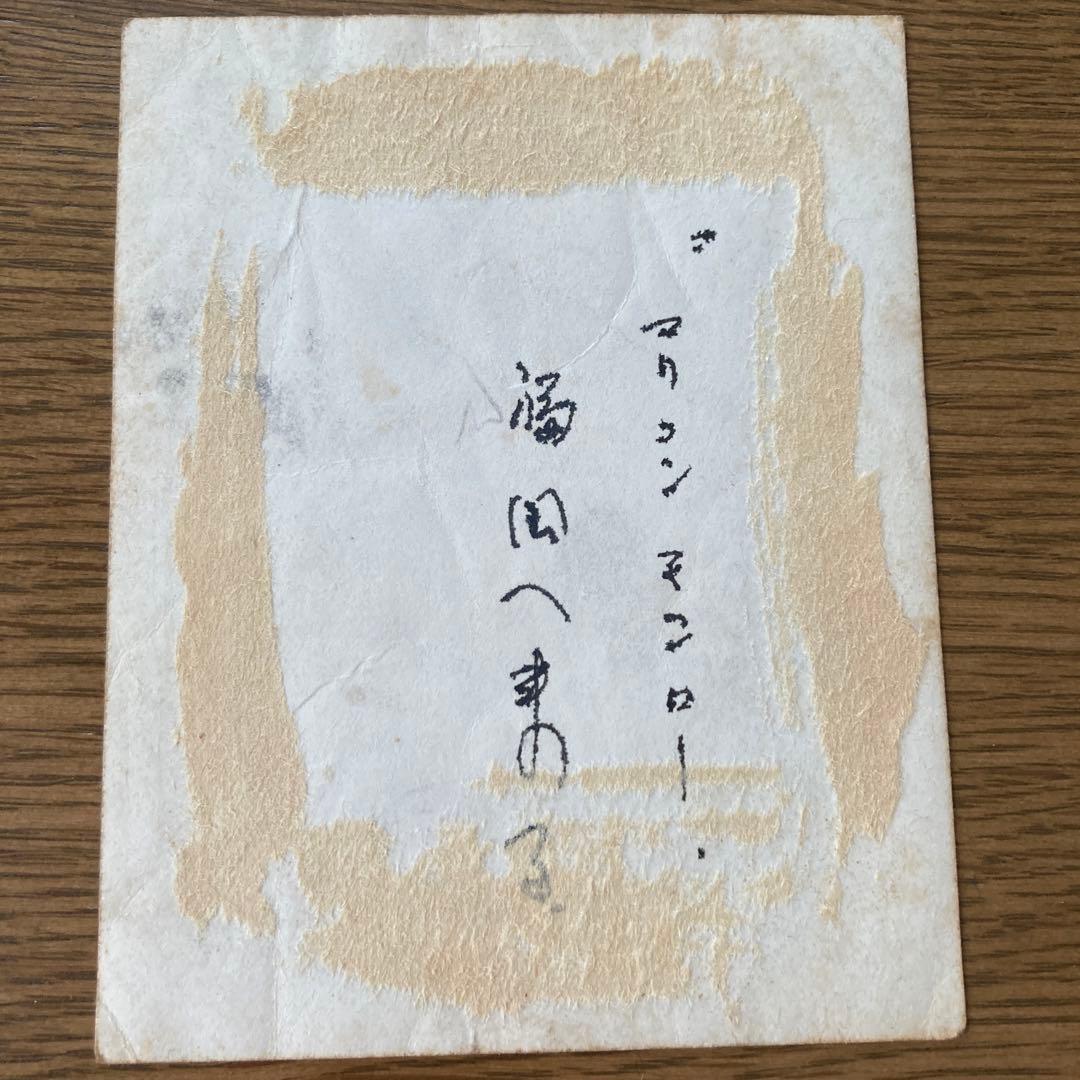 マリリン モンロー.
福岡へ来の